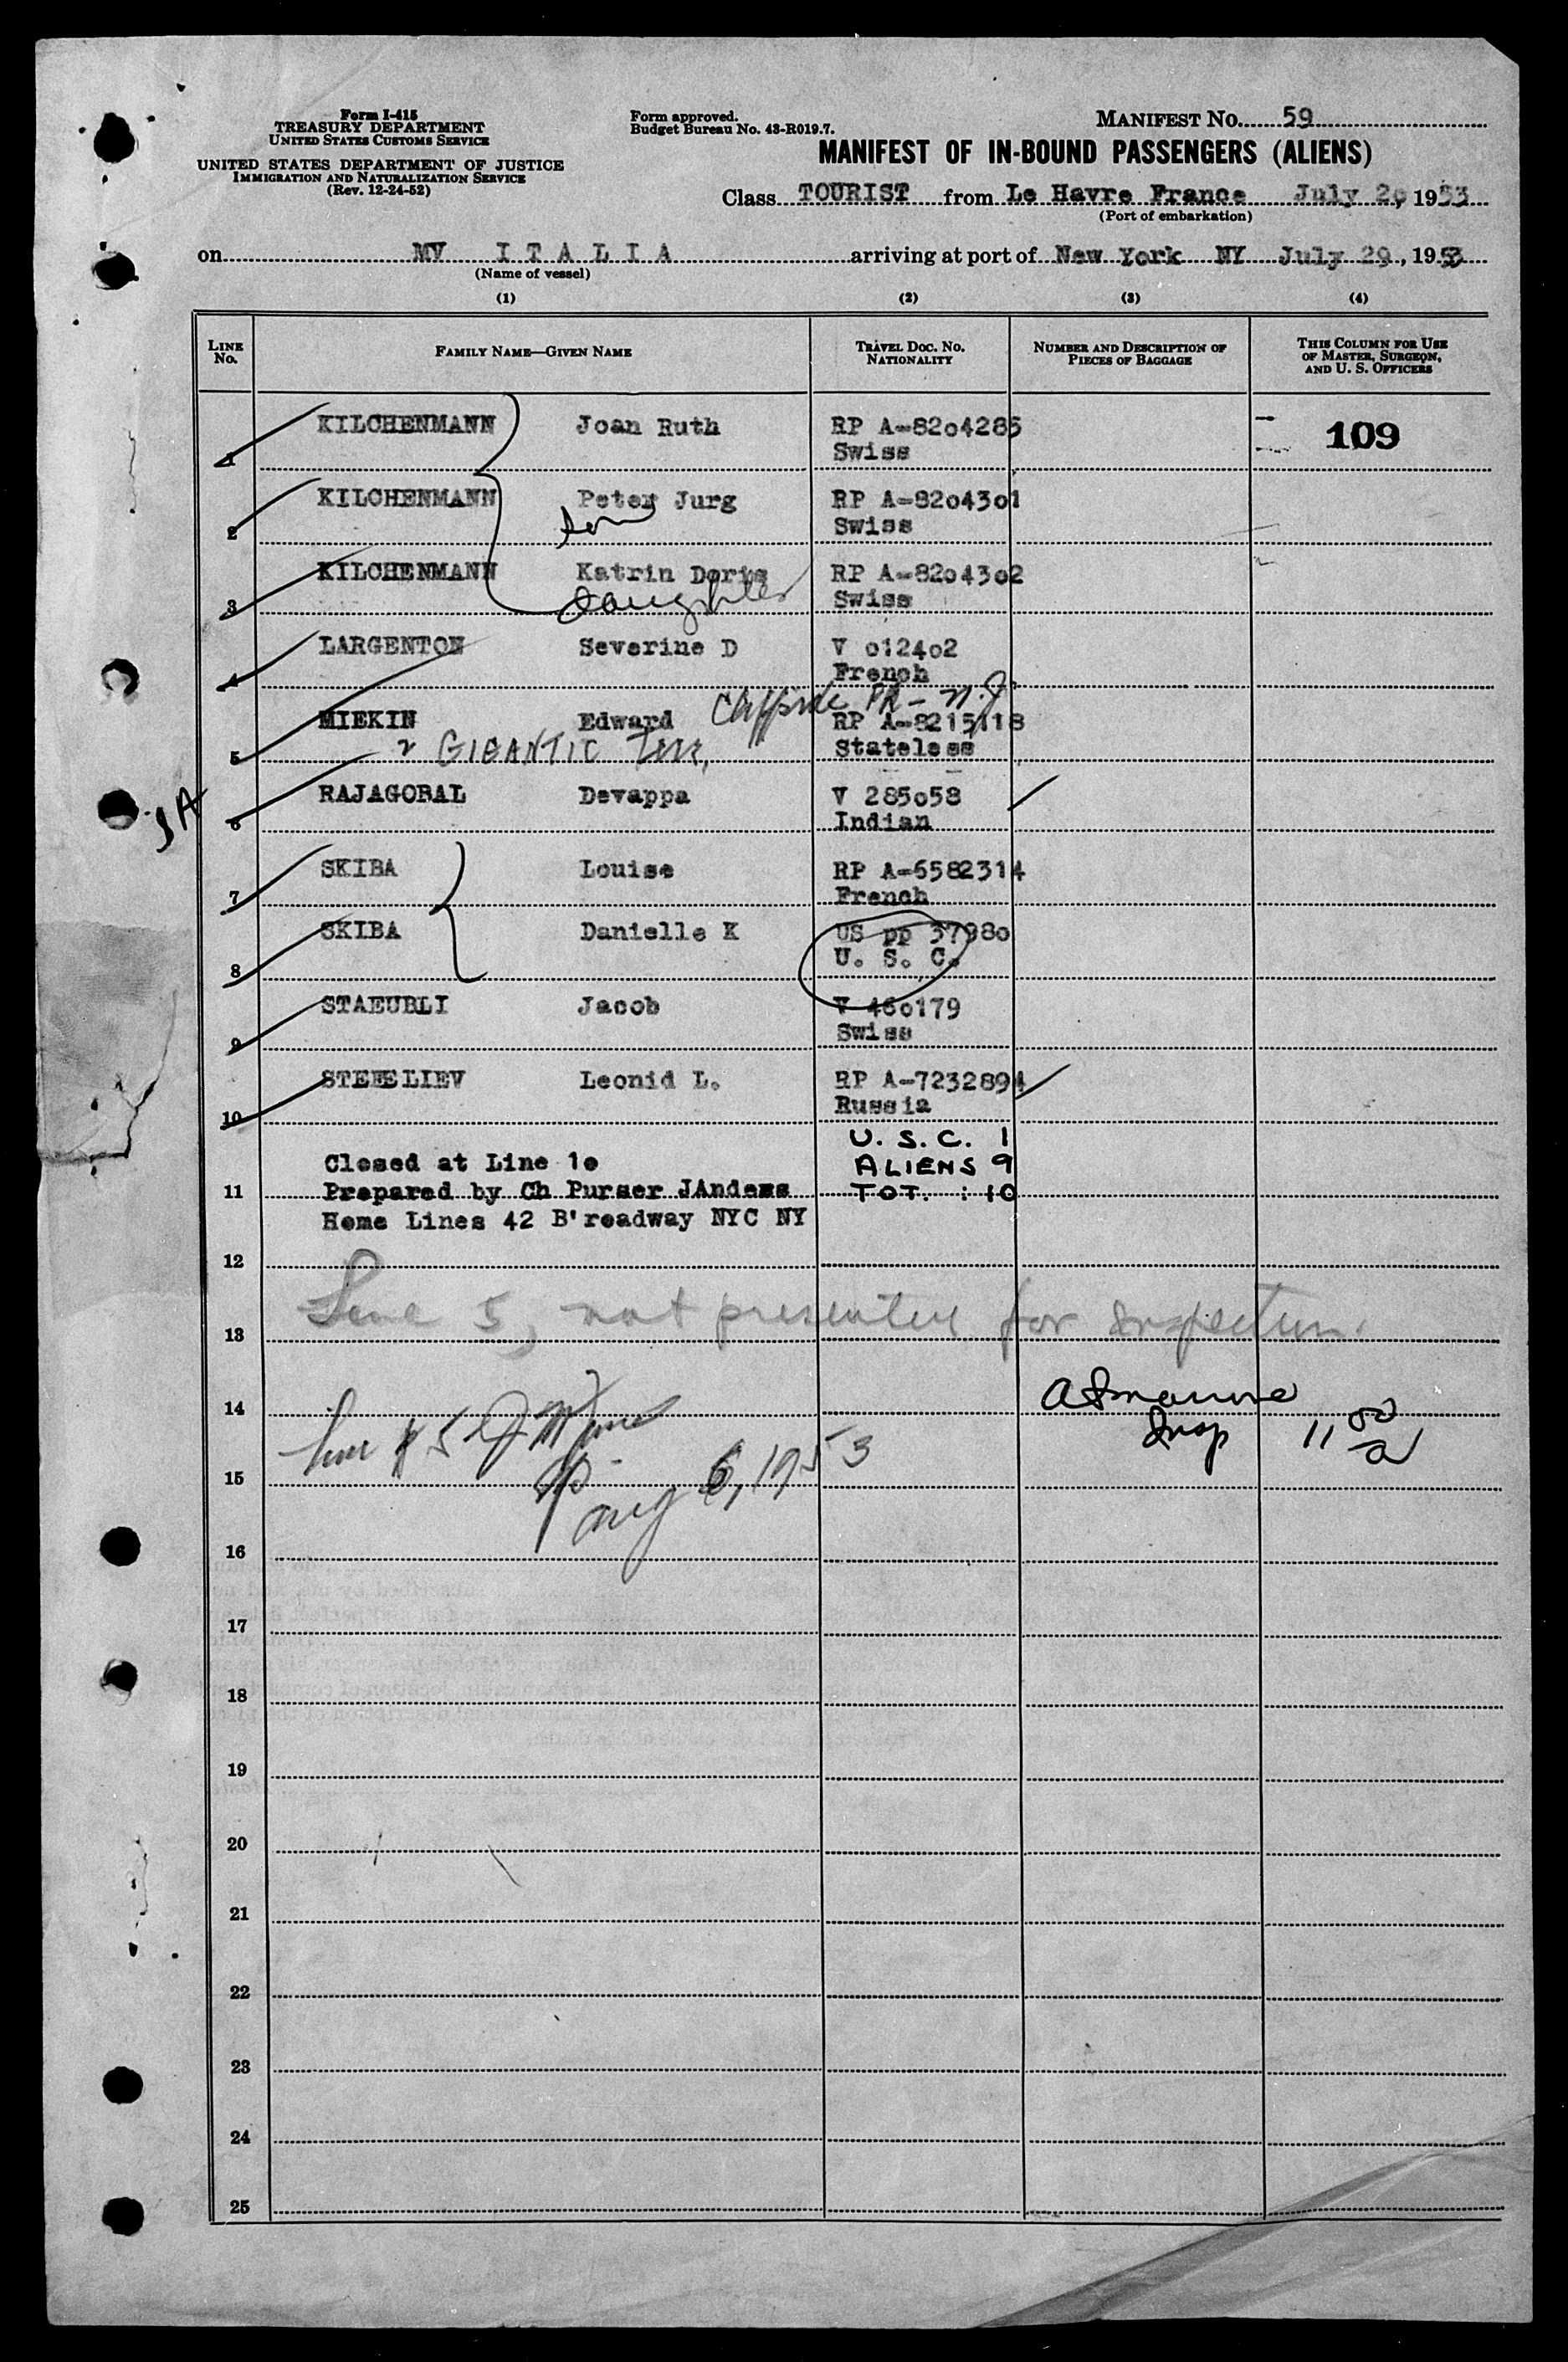 Form I-415
TREASURY DEPARTMENT
UNITED STATES CUSTOMS SERVICE
UNITED STATES DEPARTMENT OF JUSTICE
IMMIGRATION AND NATURALIZATION SERVICE
(Rev. 12-24-52)
Form approved.
Budget Bureau No. 43-R019.7.
MANIFEST NO. 59
MANIFEST OF IN-BOUND PASSENGERS (ALIENS)
Class TOURIST from Le Havre France July 20, 1953
(Port of embarkation)
on MV ITALIA arriving at port of New York NY July 29, 1953
(Name of vessel)
(1) (2) (3) (4)
LINE NO. FAMILY NAME—GIVEN NAME TRAVEL DOC. NO. NATIONALITY NUMBER AND DESCRIPTION OF PIECES OF BAGGAGE THIS COLUMN FOR USE OF MASTER, SURGEON, AND U. S. OFFICERS
1 KILCHENMANN Joan Ruth RP A-8204285 109
Swiss
2 KILCHENMANN Peter Jurg RP A-8204301
son Swiss
3 KILCHENMANN Katrin Doris RP A-8204302
Daughter Swiss
4 LARGENTON Severine D V 012402
French
Cliffside Pk - N.J.
5 MIEKIN Edward RP A-8215118
GIGANTIC Terr. Stateless
6 RAJAGOBAL Devappa V 285058
Indian
7 SKIBA Louise RP A-6582314
French
8 SKIBA Danielle K US pp 37980
U. S. C.
9 STAEUBLI Jacob V 460179
Swiss
10 STEEELIEV Leonid L. RP A-7232894
Russia
U. S. C. 1
Closed at Line 10 ALIENS 9
11 Prepared by Ch Purser JAndess TOT. : 10
Home Lines 42 B'roadway NYC NY
12
Line 5, not presented for inspection.
13
14
Insp 11 50 a
Line # 5
15
Aug 6, 1953
16
17
18
19
20
21
22
23
24
25